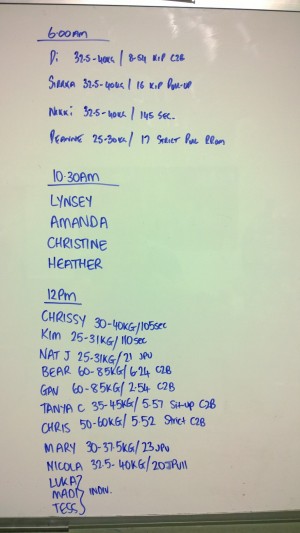 6:00AM
Di 32.5-40KG / 8-54 KIP C2B
32.5-40KG / 16 KIP PULL-UP
NIKKI 32.5-40KG / 145 SEC.
25-30KG / 17 STRICT PULL
10-30AM
LYNSEY
AMANDA
CHRISTINE
HEATHER
12PM
CHRISSY 30-40KG/105SEC
KIM 25-31KG/110SEC
NAT J 25-31KG/21 JPU
BEAR 60-85KG/6-24 C2B
GAV 60-85KG/2-54 C2B
TANYA C 35-45KG/5-57 Sit-up C2B
CHRIS 50-60KG/5-52 Strict C2B
MARY 30-37.5KG/23JPU
NICOLA 32.5-40KG/20JPU
LUKA
MADI INDIV.
TESS